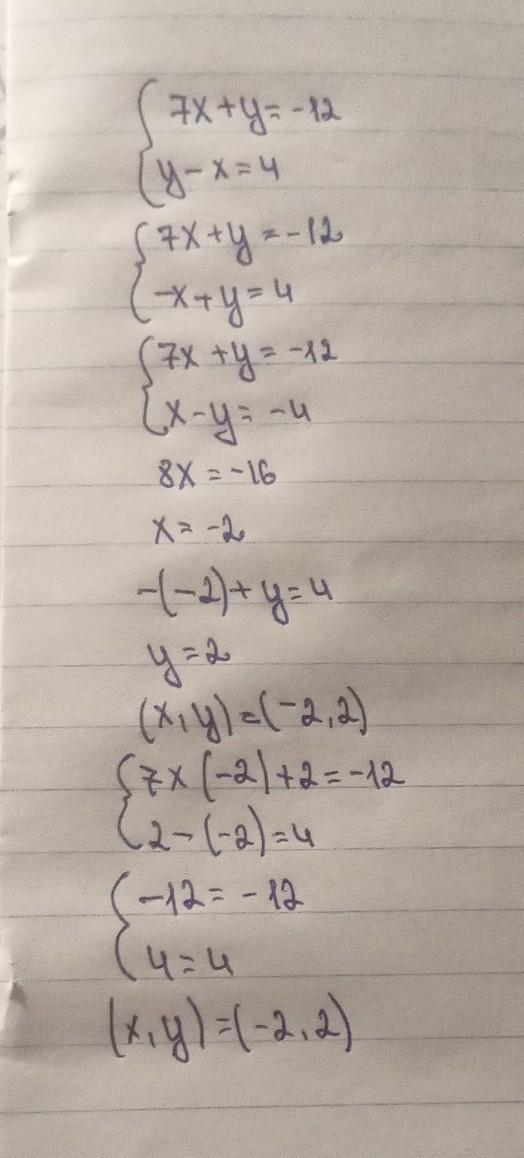 7x+y=-12
y-x=4
7x+y=-12
-x+y=4
7x+y=-12
x-y=-4
8x=-16
x=-2
-(-2)+y=4
y=2
(x,y)=(-2,2)
7x(-2)+2=-12
2-(-2)=4
-12=-12
4=4
(x,y)=(-2,2)